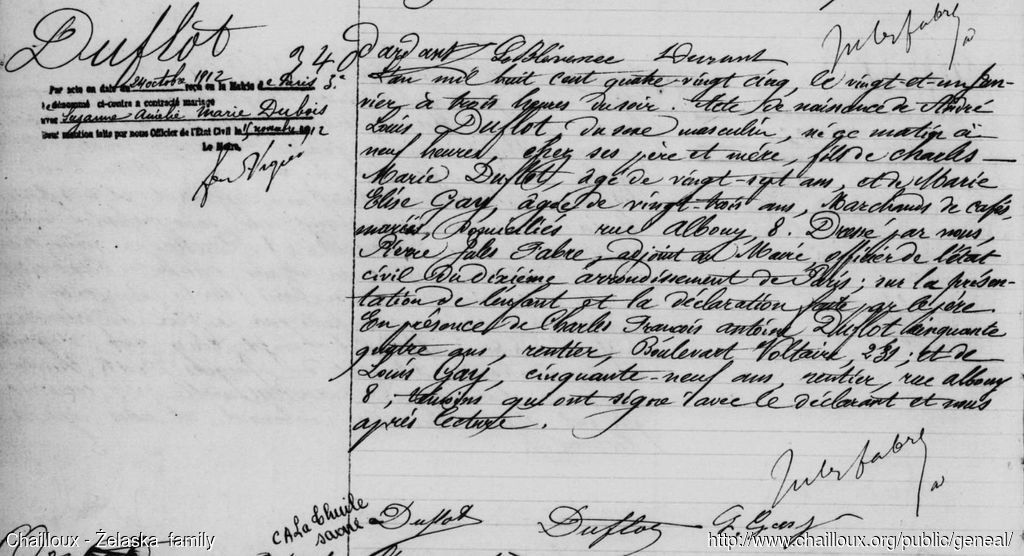 Duflot
348
Par acte en date du 24 octobre 1912 reçu en la Mairie de Paris 3e
le dénommé ci-contre a contracté mariage
avec Suzanne Amélie Marie Dubois
Dont mention faite par nous Officier de l'État Civil le novembre 1912
Le Maire,
Jules Fabre
L'an mil huit cent quatre vingt cinq, le vingt-et-un Jan-
vier, à trois heures du soir. Acte de naissance de André
Louis Duflot du sexe masculin, né ce matin à
neuf heures, chez ses père et mère, fils de Charles
Marie Duflot, âgé de vingt-sept ans, et de Marie
Elise Gay, âgée de vingt-trois ans, Marchands de cafés,
mariés, Domiciliés rue Albouy, 8. Dressé par nous,
Pierre Jules Fabre, adjoint au Maire, officier de l'état
civil du dixième arrondissement de Paris; sur la présen-
tation de l'enfant et la déclaration faite par le père
En présence de Charles François antoine Duflot cinquante
quatre ans, rentier, Boulevart Voltaire, 231; et de
Louis Gay, cinquante-neuf ans, rentier, rue albouy
8, témoins qui ont signé avec le déclarant et nous
après lecture.
Jules Fabre
Duflot Duflot
CALa Thuile
savoie
Chailloux - Żelaska family
http://www.chailloux.org/public/geneal/